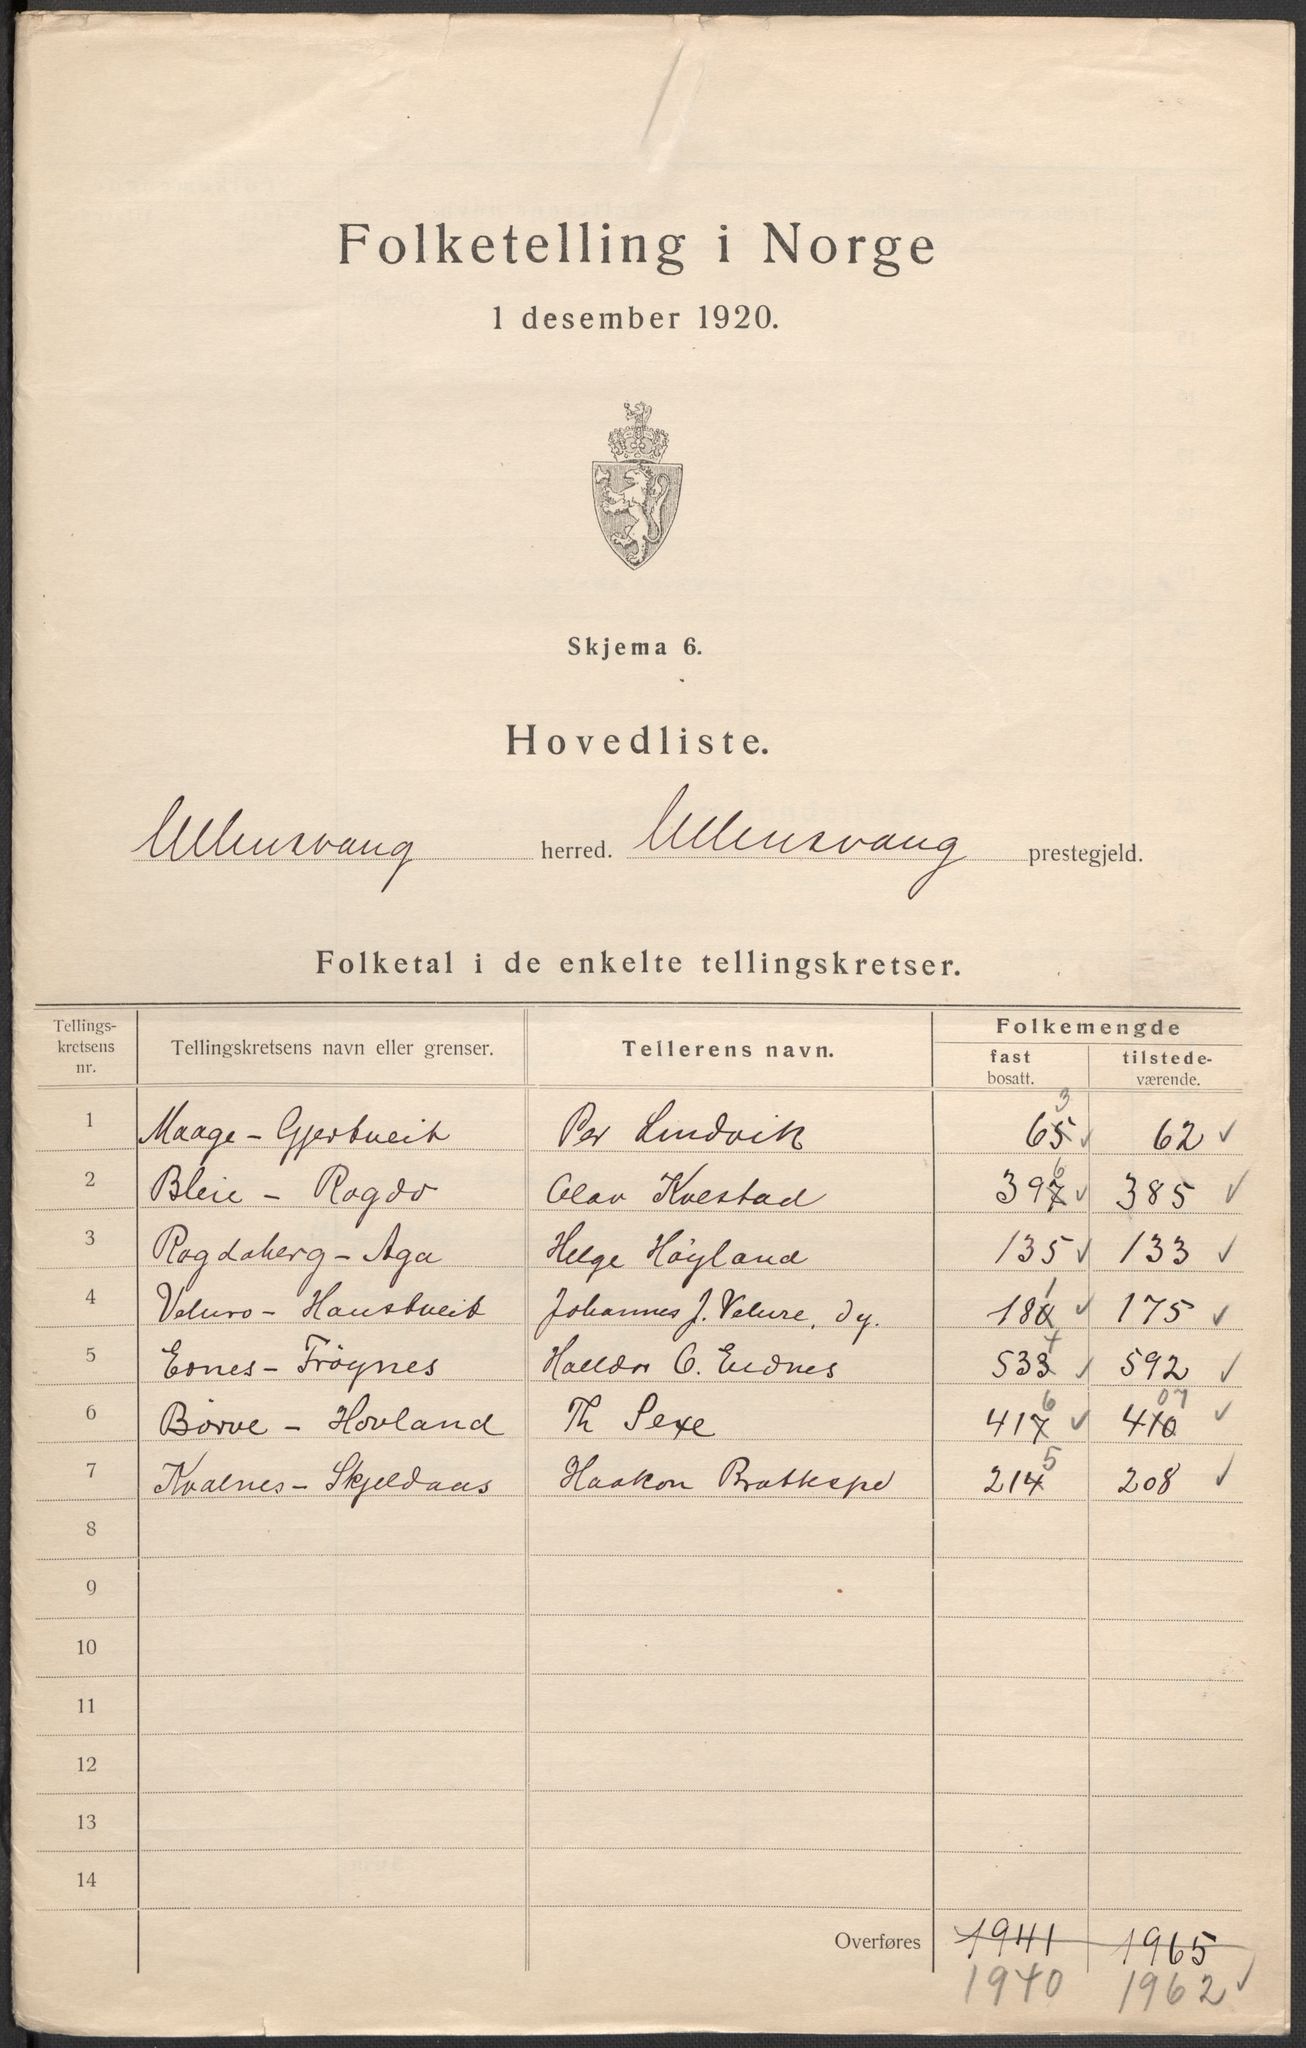 Folketelling i Norge
1 desember 1920.
Skjema 6.
Hovedliste.
Ullensvang herred. Ullensvang prestegjeld.
Folketal i de enkelte tellingskretser.
Tellings-kretsens nr. Tellingskretsens navn eller grenser. Tellerens navn. Folkemengde
fast bosatt. tilstede-værende.
1 Maage - Gjertveit Per Lindvik 65 3 ✓ 62 ✓
2 Bleie - Rogdo Olav Kvestad 397 6 ✓ 385 ✓
3 Rogdaberg - Aga Helge Höyland 135 ✓ 133 ✓
4 Veluro - Haustveit Johannes J. Velure, dy. 180 1 ✓ 175 ✓
5 Ednes - Fröynes Halldor O. Eidnes 533 4 ✓ 592 ✓
6 Börve - Hovland Th Sexe 417 6 ✓ 410 07 ✓
7 Kvalnes - Skjeldaas Haakon Brattespe 214 5 208 ✓
8
9
10
11
12
13
14
Overføres 1941 1965
1940 1962 ✓